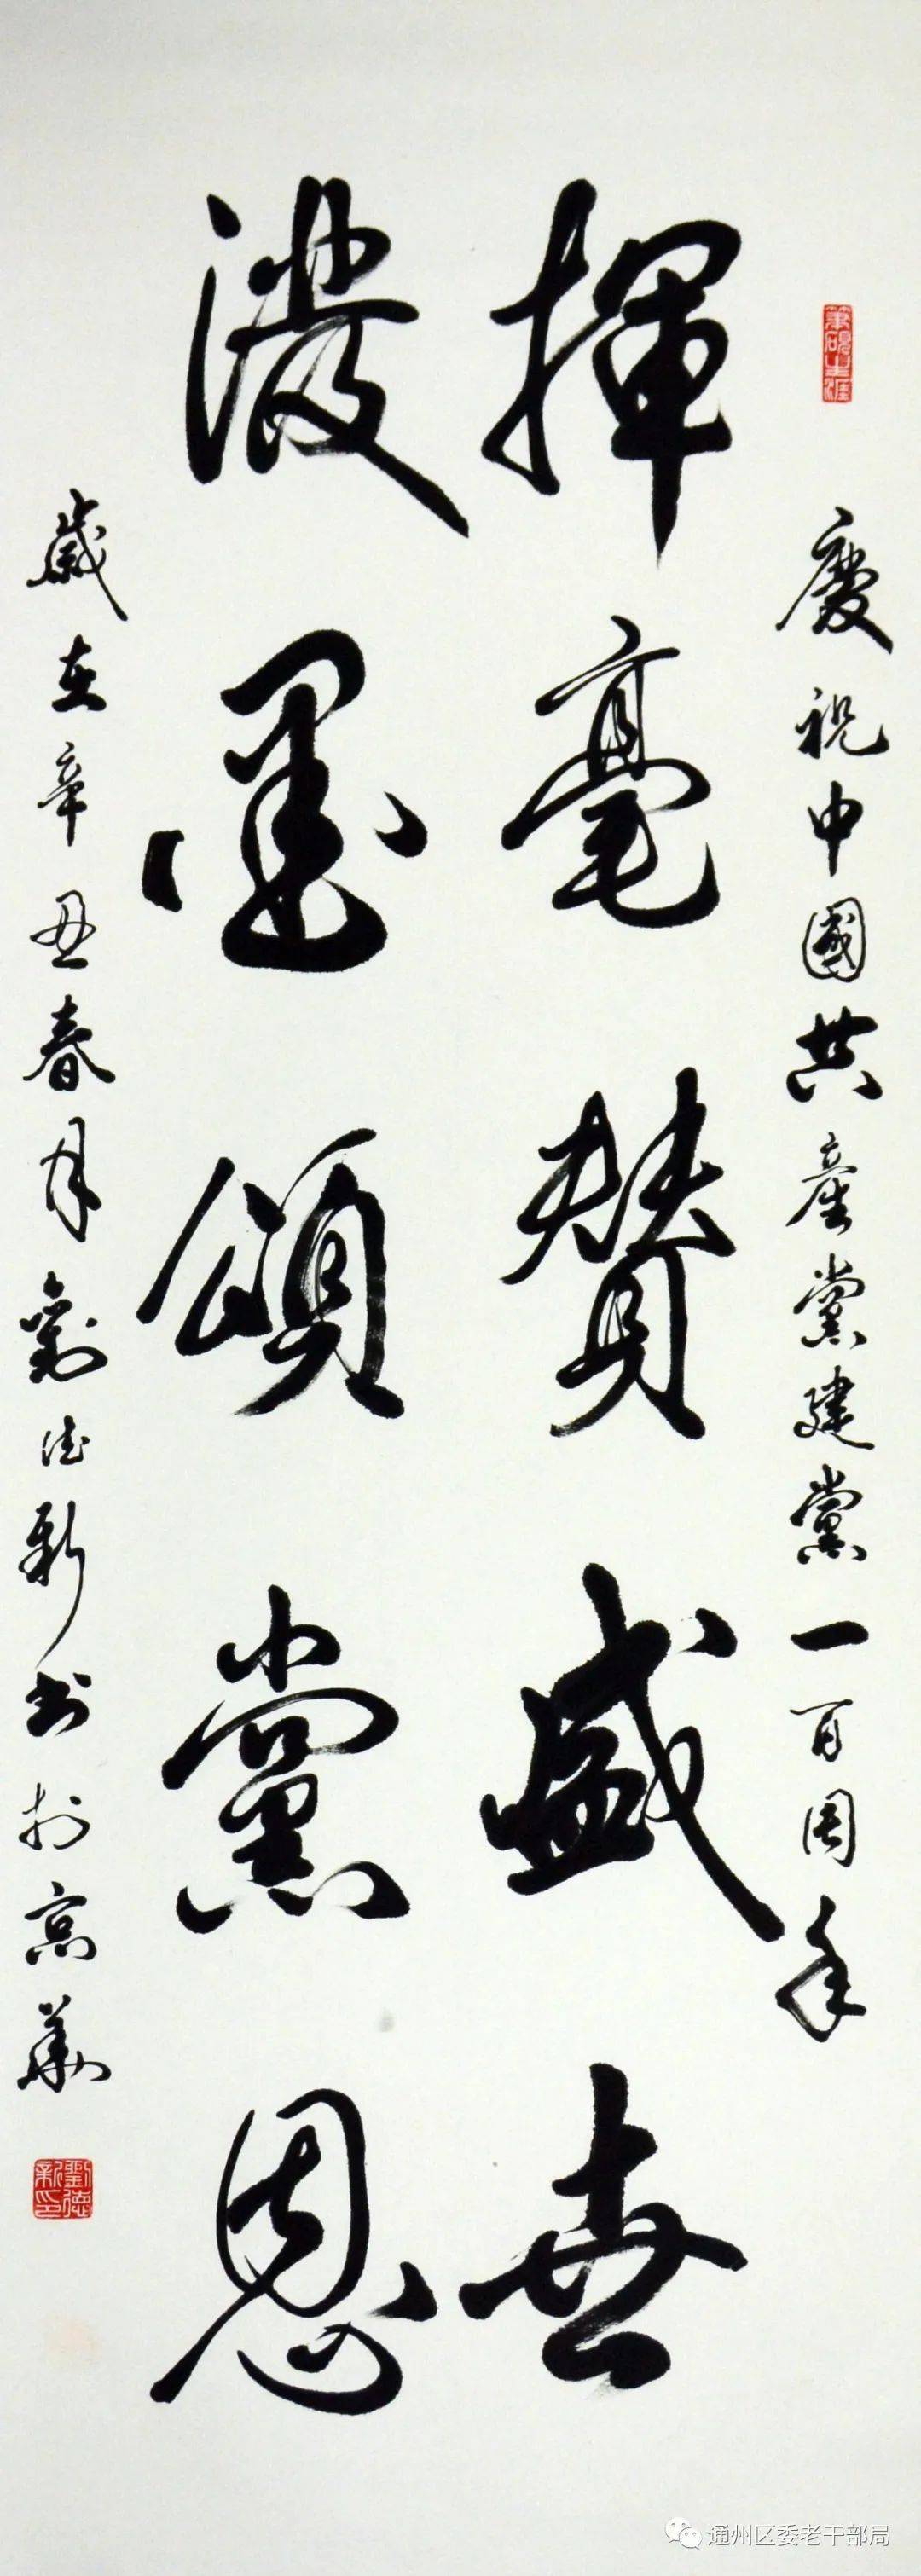 筆硯生涯
慶祝中國共產黨建黨一百周年
揮毫贊盛世
潑墨頌黨恩
歲在辛丑春月劉德新書於京華
劉德新印
通州区委老干部局